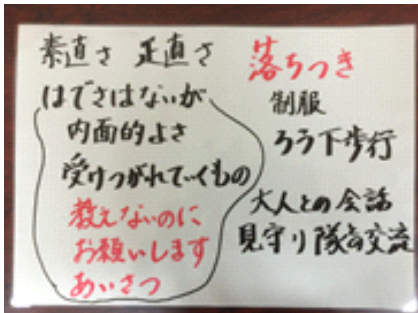 素直さ 正直さ
はでさはないが
内面的よさ
受けつがれていくもの
教えないのに
お願いします
あいさつ
落ちつき
制服
ろう下歩行
大人との会話
見守り隊の交流